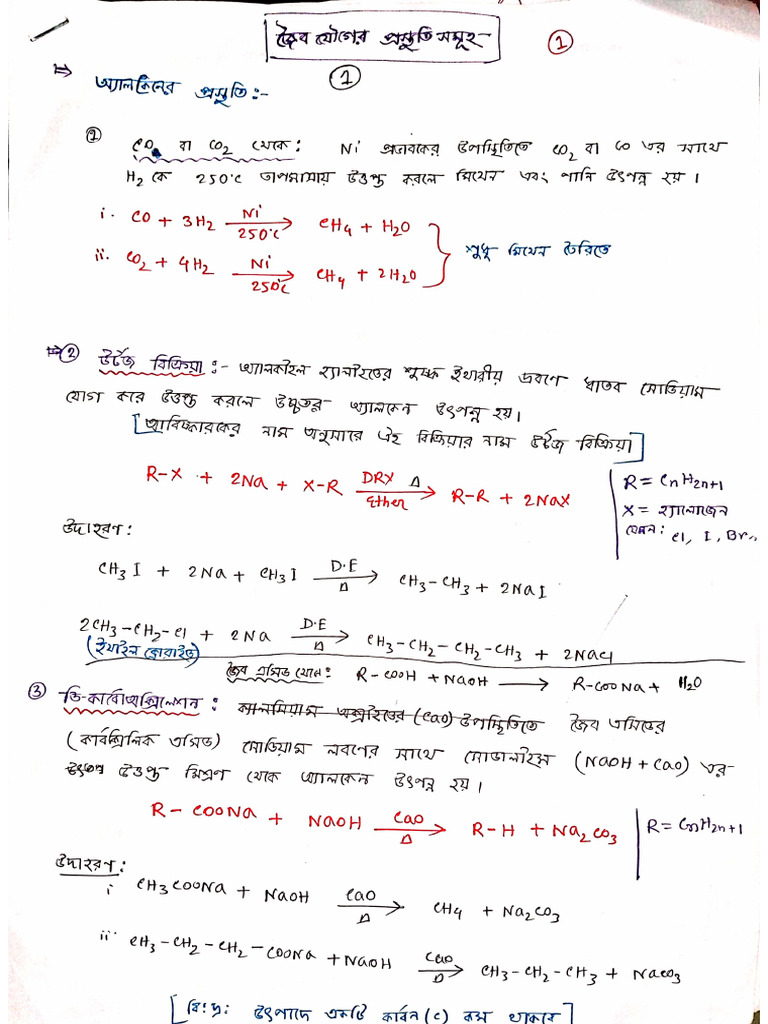 জৈব যৌগের প্রস্তুতি সমূহ
1
1
⇒ অ্যালকেনের প্রস্তুতি:-
① CO₂ বা CO₂ থেকে: Ni প্রভাবকের উপস্থিতিতে CO₂ বা CO এর সাথে
H₂ কে 250°C তাপমাত্রায় উত্তপ্ত করলে মিথেন এবং পানি উৎপন্ন হয়।
i. CO + 3H₂ —Ni/250°C→ CH₄ + H₂O
ii. CO₂ + 4H₂ —Ni/250°C→ CH₄ + 2H₂O
শুধু মিথেন তৈরিতে
⇒ ② উর্টজ বিক্রিয়া:- অ্যালকাইল হ্যালাইডের শুষ্ক ইথারীয় দ্রবণে ধাতব সোডিয়াম
যোগ করে উত্তপ্ত করলে উচ্চতর অ্যালকেন উৎপন্ন হয়।
[আবিষ্কারকের নাম অনুসারে এই বিক্রিয়ার নাম উর্টজ বিক্রিয়া]
R-X + 2Na + X-R —DRY Δ/Ether→ R-R + 2NaX
R = CnH2n+1
X = হ্যালোজেন
যেমন: Cl, I, Br,,
উদাহরণ:
CH₃I + 2Na + CH₃I —D.E/Δ→ CH₃-CH₃ + 2NaI
2CH₃-CH₂-Cl + 2Na —D.E/Δ→ CH₃-CH₂-CH₂-CH₃ + 2NaCl
(ইথাইল ক্লোরাইড)
জৈব এসিড থেকে: R-COOH + NaOH → R-COONa + H₂O
③ ডি-কার্বোক্সিলেশন: ক্যালসিয়াম অক্সাইডের (CaO) উপস্থিতিতে জৈব এসিডের
(কার্বক্সিলিক এসিড) সোডিয়াম লবণের সাথে সোডালাইম (NaOH + CaO) এর
উত্তপ্ত মিশ্রণ থেকে অ্যালকেন উৎপন্ন হয়।
R-COONa + NaOH —CaO/Δ→ R-H + Na₂CO₃
R = CnH2n+1
উদাহরণ:
i CH₃COONa + NaOH —CaO/Δ→ CH₄ + Na₂CO₃
ii CH₃-CH₂-CH₂-COONa + NaOH —CaO/Δ→ CH₃-CH₂-CH₃ + NaCO₃
[বি:দ্র: উৎপাদে একটি কার্বন (C) কম থাকবে]